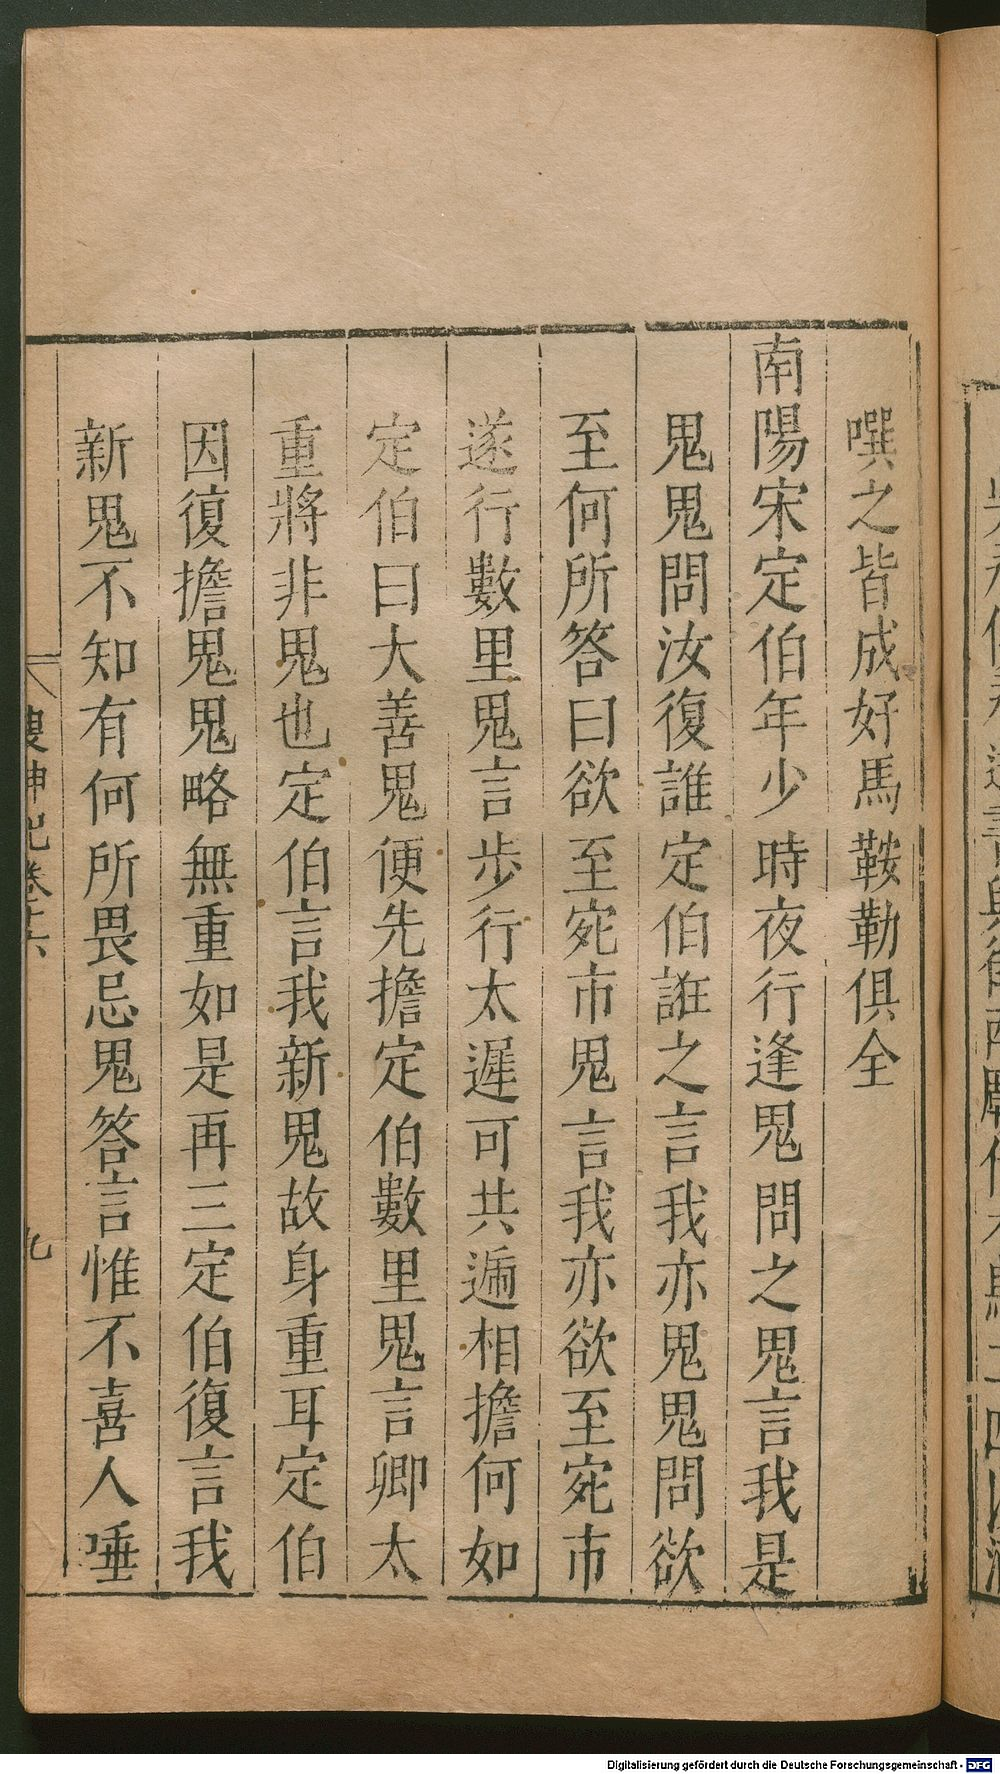 噀之皆成好馬鞍勒俱全
南陽宋定伯年少時夜行逢鬼問之鬼言我是
鬼鬼問汝復誰定伯誑之言我亦鬼鬼問欲
至何所答曰欲至宛市鬼言我亦欲至宛市
遂行數里鬼言步行太遲可共遞相擔何如
定伯曰大善鬼便先擔定伯數里鬼言卿太
重將非鬼也定伯言我新鬼故身重耳定伯
因復擔鬼鬼略無重如是再三定伯復言我
新鬼不知有何所畏忌鬼答言惟不喜人唾
搜神記卷十六
九
Digitalisierung gefördert durch die Deutsche Forschungsgemeinschaft - DFG